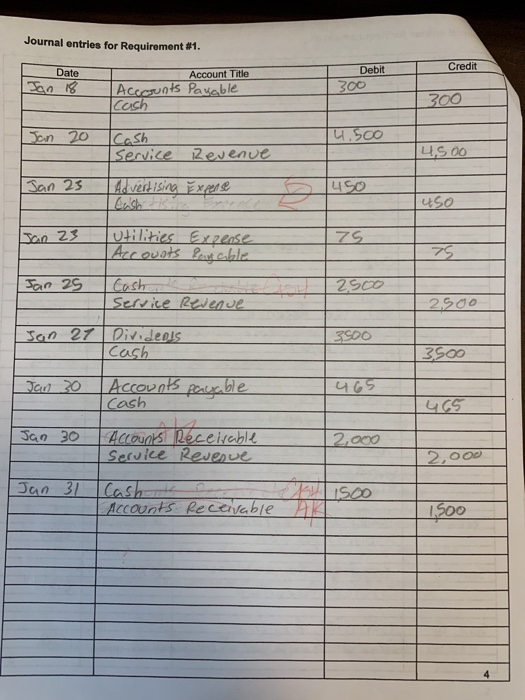 Journal entries for Requirement #1.
Date Account Title Debit Credit
Jan 18 Accounts Payable 300
Cash 300
Jan 20 Cash 4,500
Service Revenue 4,500
Jan 23 Advertising Expense 450
Cash 450
Jan 23 Utilities Expense 75
Accounts Payable 75
Jan 25 Cash 2,500
Service Revenue 2,500
Jan 27 Dividends 3,500
Cash 3,500
Jan 30 Accounts payable 465
Cash 465
Jan 30 Accounts Receivable 2,000
Service Revenue 2,000
Jan 31 Cash 1,500
Accounts Receivable 1,500
4